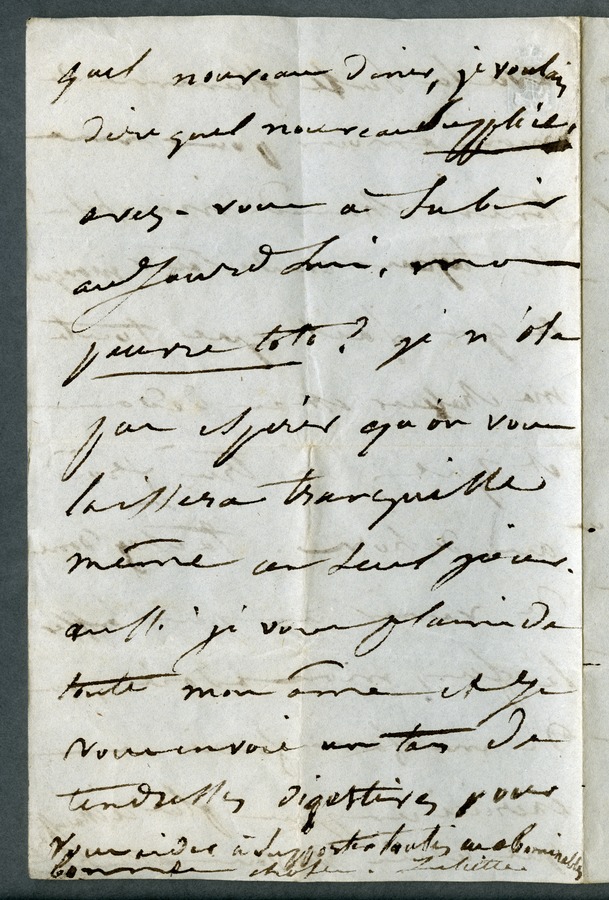 quel nouveau diner, je voulais
dire quel nouveau supplice,
avez-vous à subir
aujourd'hui, mon
pauvre toto? je n'ose
pas espérer qu'on vous
laissera tranquille
même un seul jour.
aussi je vous plains de
toute mon âme et je
vous envoie un tas de
tendresses digestives pour
vous aider à supporter toutes ces abominables
bonnes choses. Juliette